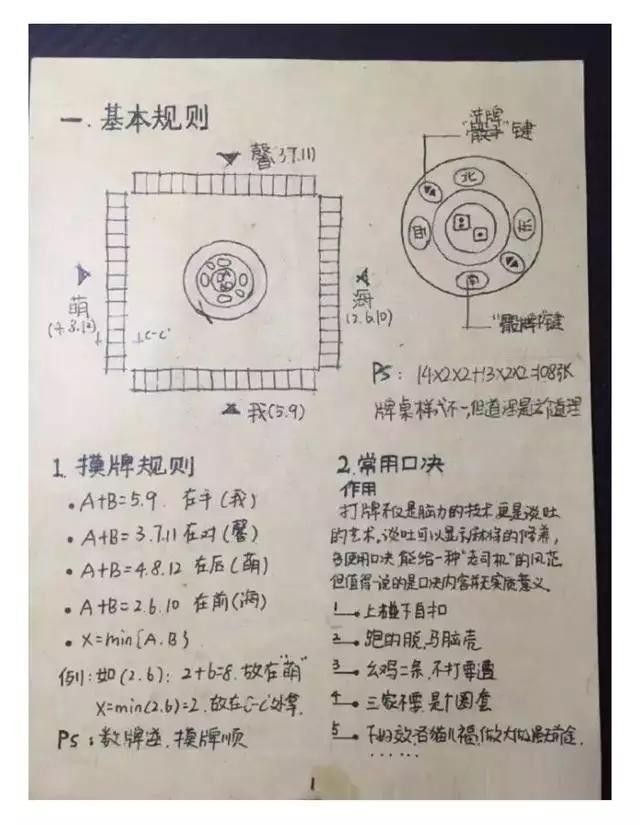 一.基本规则
馨(3.7.11)
萌
(4.8.12)
C-C'
海
(2.6.10)
我(5.9)
洗牌
"骰子"键
北
西
东
南
"骰牌"键
PS: 14×2×2+13×2×2=108张
牌桌样式不一,但道理是这个道理
1.摸牌规则
• A+B=5.9 在手(我)
• A+B=3.7.11 在对(馨)
• A+B=4.8.12 在后(萌)
• A+B=2.6.10 在前(海)
• X=min{A.B}
例:如(2.6): 2+6=8.放在"萌"
X=min(2.6)=2.放在C-C'处拿.
PS:数牌逆.摸牌顺
2.常用口决
作用
打牌不仅是脑力的技术,更是谈吐
的艺术,谈吐可以显示麻将的修养,
多使用口决能给一种"老司机"的风范
但值得一说的是口决内容并无实质意义.
1 上碰下自扣
2 跑的脱,马脑壳
3 幺鸡二条,不打要遭
4 三家不要,是个圆套
5
......
1